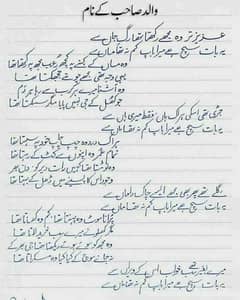 والد صاحب کے نام
عزیز تر وہ مجھے رکھتا تھا رگ جاں سے
یہ بات سچ ہے مرا باپ کم نہ تھا ماں سے
وہ ماں کے کہنے پہ کچھ رعب مجھ پہ رکھتا تھا
یہی وجہ تھی مجھے چومتے جھجکتا تھا
وہ آشنا مرے ہر کرب سے رہا ہر دم
جو کھل کے جی نہیں پایا مگر سسکتا تھا
جڑی تھی اسکی ہر اک ہاں فقط مری ہاں سے
یہ بات سچ ہے مرا باپ کم نہ تھا ماں سے
ہر اک درد وہ چپ چاپ خود پہ سہتا تھا
تمام عمر وہ اپنوں سے کٹ کے رہتا تھا
وہ لوٹتا تھا کہیں رات دیر کو، دن بھر
وجود اس کا پسینے میں ڈھل کے بہتا تھا
گلے تھے پھر بھی مجھے ایسے چاک داماں سے
یہ بات سچ ہے مرا باپ کم نہ تھا ماں سے
پرانا سوٹ وہ پہنتا تھا کم وہ کھاتا تھا
مگر کھلونے میرے سب خرید لاتا تھا
وہ مجھ کو سوئے ہوئے دیکھتا تھا جی بھر کے
نہ جانے سوچ کے کیا کیا وہ مسکراتا تھا
میرے بغیر تھے سب خواب اس کے ویراں سے
یہ بات سچ ہے مرا باپ کم نہ تھا ماں سے